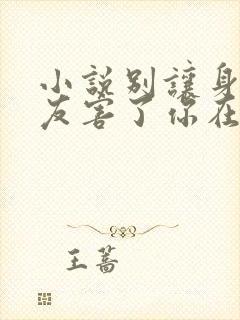 小說別讓身
友害了你在
王蔷